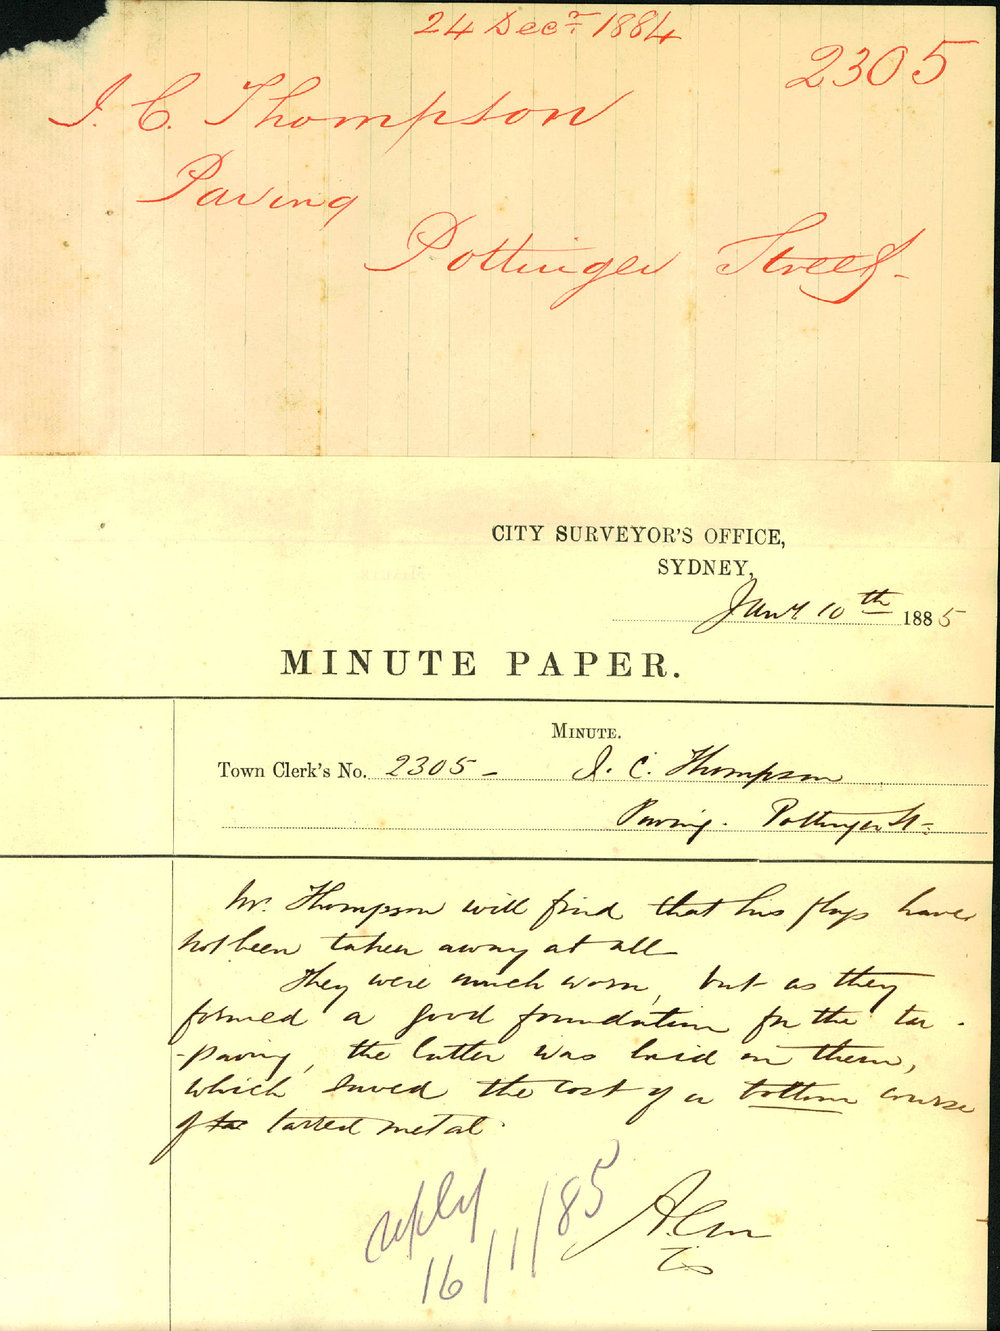 24 Decr. 1884
2305
J. C. Thompson
Paving
Pottinger Street-
CITY SURVEYOR'S OFFICE,
SYDNEY,
Jany 10th 1885
MINUTE PAPER.
MINUTE.
Town Clerk's No. 2305 - J. C. Thompson
Paving. Pottinger St-
Mr. Thompson will find that his flags have
not been taken away at all
They were much worn, but as they
formed a good foundation for the tar-
-paving, the latter was laid on them,
which saved the cost of a bottom course
of tarred metal.
reply
16/1/85
CS